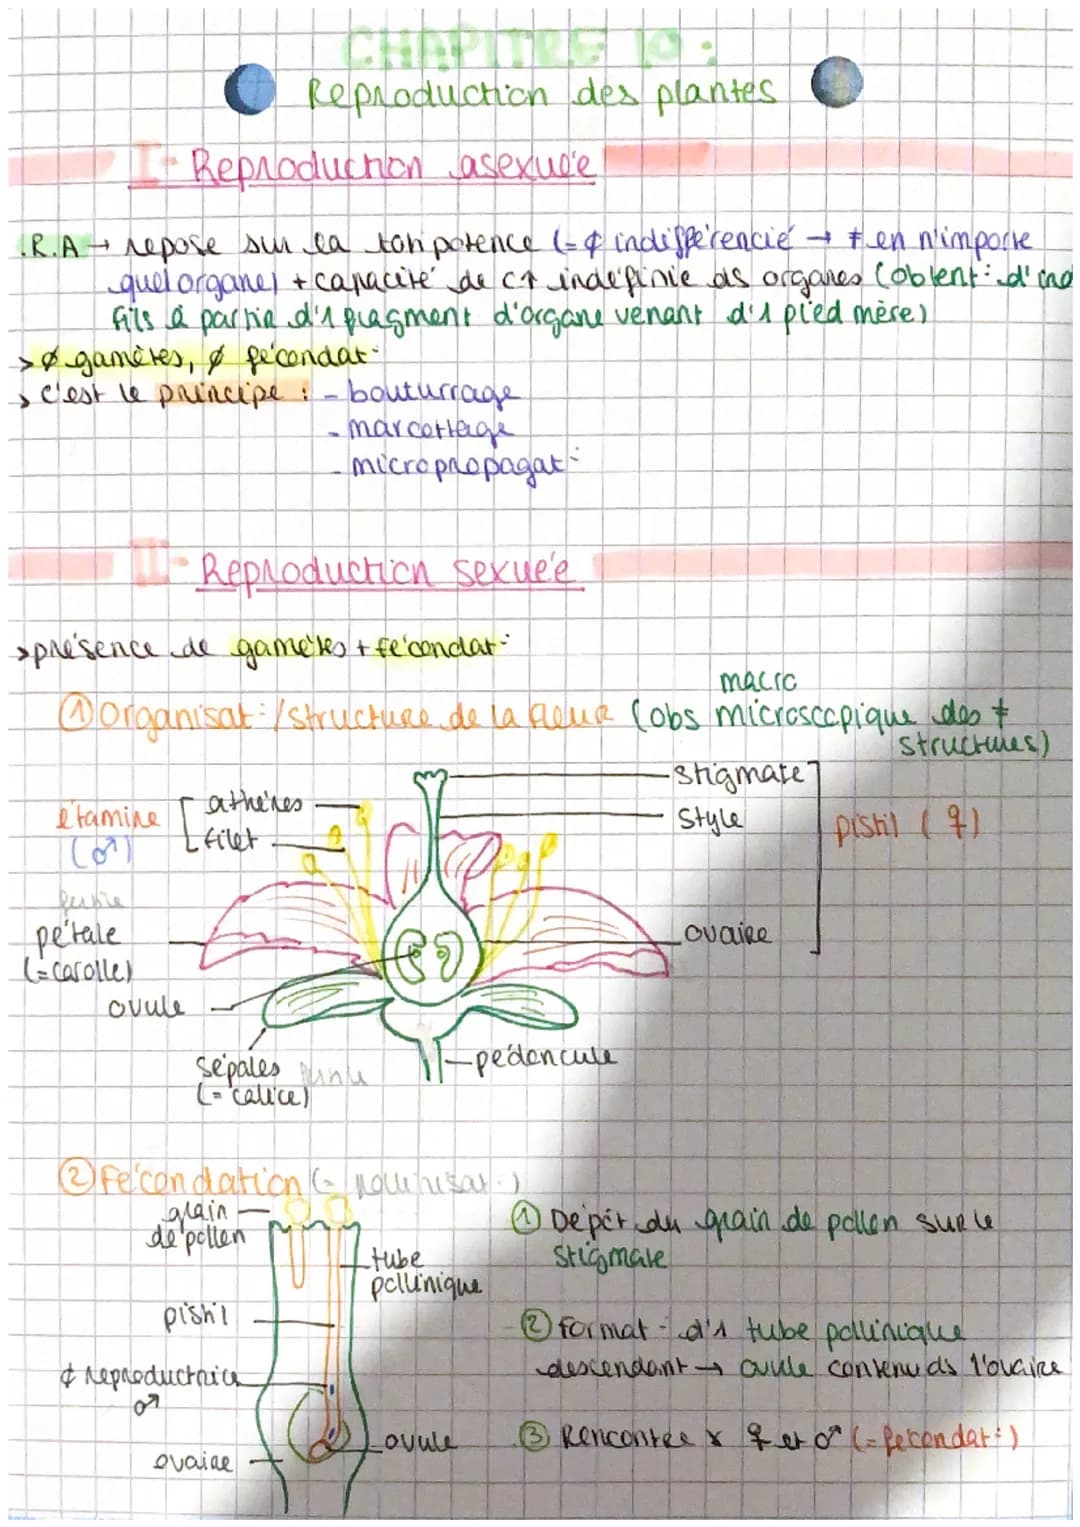 CHAPITRE 10 :
Reproduction des plantes
I- Reproduction asexuée
.R.A → repose sur la totipotence (= ¢ indifférencié → ≠ en n'importe
quel organe) + capacité de c↑ indéfinie ds organes (obtent: d'ind
fils à partir d'1 fragment d'organe venant d'1 pied mère)
> Ø gamètes, Ø fécondat:
> c'est le principe : - bouturrage
- marcottage
- micropropagat:
II- Reproduction sexuée
> présence de gamètes + fécondat:
macro
① Organisat:/structure de la fleur (obs microscopique des ≠
structures)
stigmate
étamine
athères
style
pistil (♀)
(♂)
filet
pétale
ovaire
(=carolle)
ovule
sépales
pédoncule
(= calice)
② Fécondation (= pollinisat:)
grain
de pollen
① Dépôt du grain de pollen sur le
stigmate
tube
pollinique
pistil
② Format: d'1 tube pollinique
descendant → ovule contenu ds l'ovaire
¢ reproductrice
♂
③ Rencontre x ♀ et ♂ (= fecondat:)
ovule
ovaire